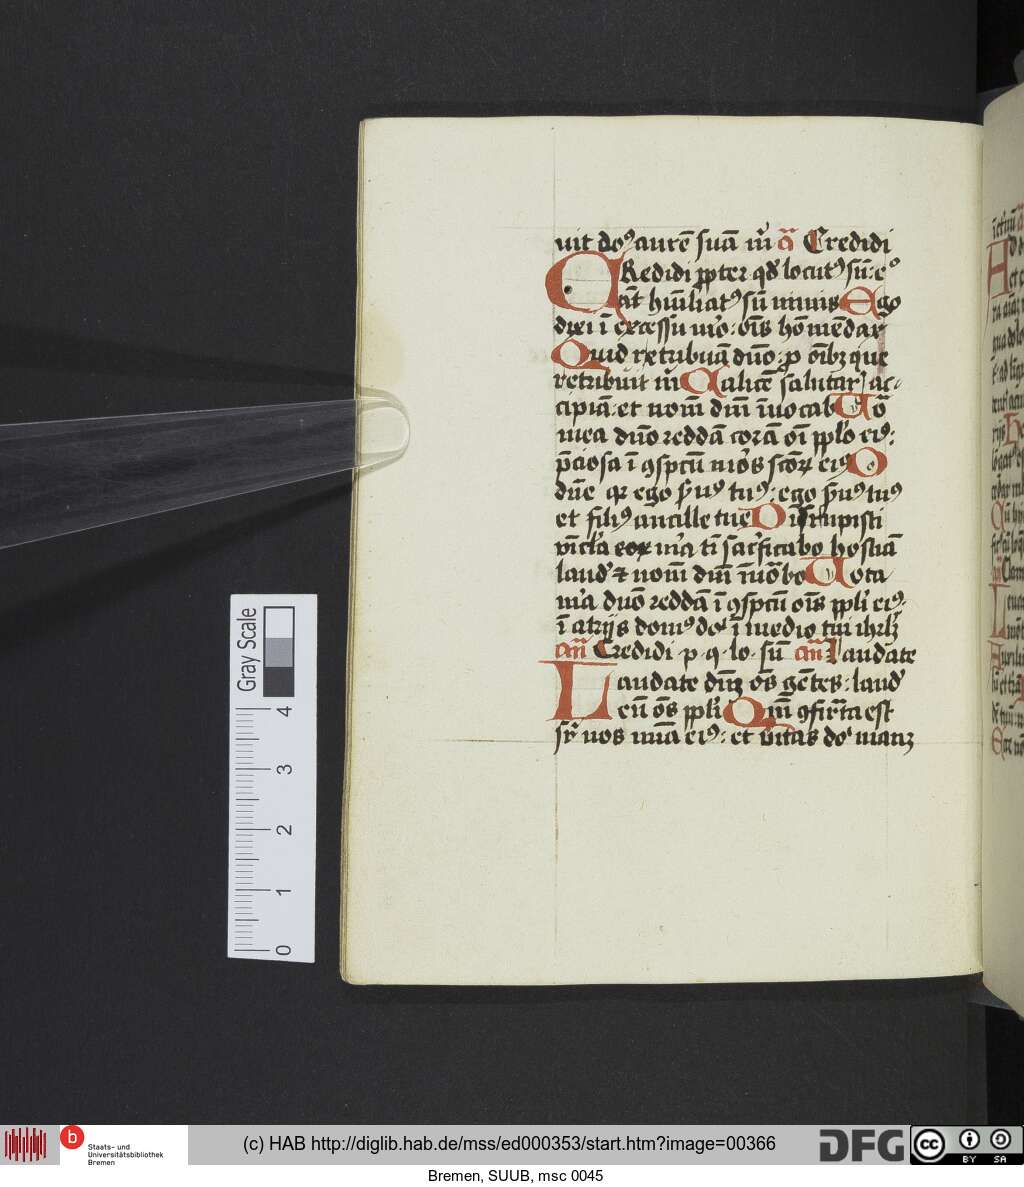 uit do⁹ aurē suā m̄ ā Credidi
CRedidi ꝓpter qd̕ locut⁹ sū: e⁹
āt hūiliat⁹ sū nimis Ego
dixi ī excessu mo̕: oīs hō mēdax
Quid retribuā dūo: ꝓ oībꝫ que
retribuit m̄ Calicē salutar̕ ac-
cipiā: et nomī dm̄ īuocab̕ Uō
mea dūo reddā corā oī ppl̕o ei⁹:
p̄ciosa ī ꝯspcū mōs scōꝝ ei⁹ O
dūe qꝛ ego s̕u⁹ tu⁹: ego s̕u⁹ tu⁹
et fili⁹ ancille tue Dirupisti
vīcl̕a m̕a tī sac̕ficabo hostiā
laud̕ ⁊ nomī dm̄ īuōbo Uota
m̕a duō reddā ī ꝯspcū oīs ppl̕i ei⁹:
ī atrijs dom⁹ do̕ ī medio tui ihrl̕ꝫ
an̄ Credidi ꝓ·q·lo·sū an̄ Laudate
Laudate dūꝫ oēs gētes: laud̕
eū oēs ppl̕i Qm̄ ꝯfir̕ta est
sr̕ nos mīa ei⁹: et v̄itas do̕ manꝫ
Gray Scale
4
3
2
1
0
b Staats- und
Universitätsbibliothek
Bremen
(c) HAB http://diglib.hab.de/mss/ed000353/start.htm?image=00366
DFG
cc BY SA
Bremen, SUUB, msc 0045